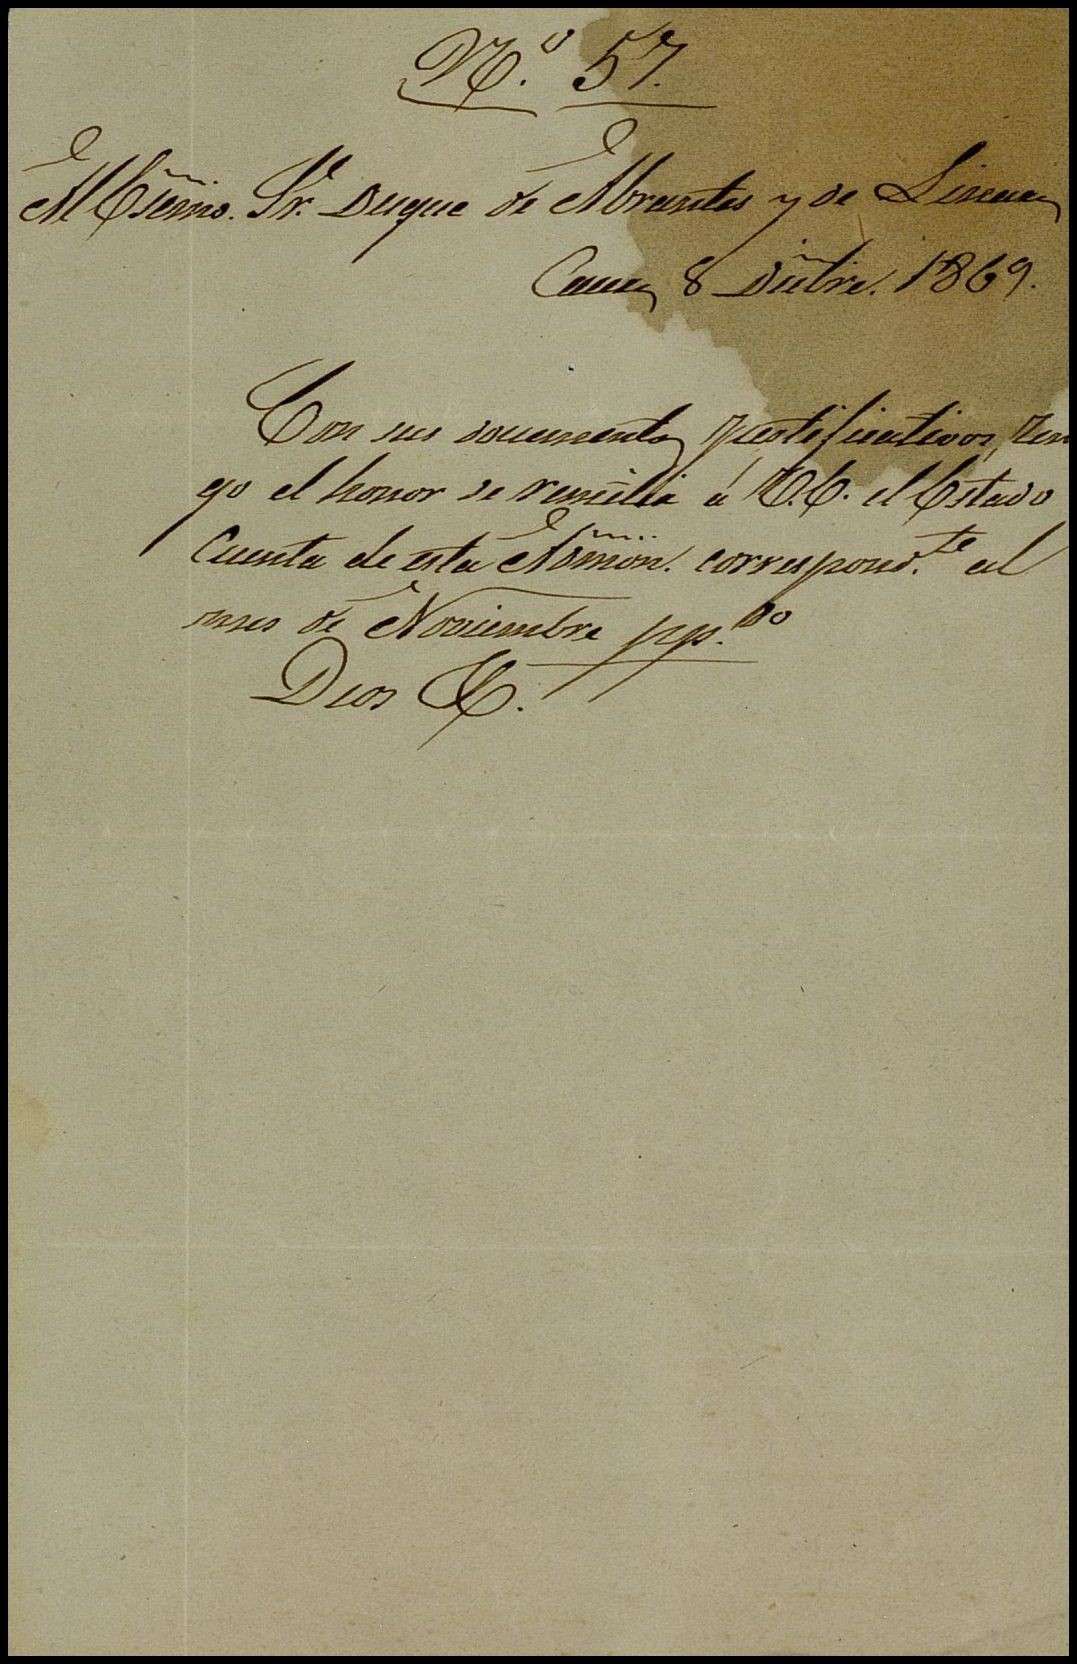 N.º 57.
Al Esc̃mo. Sr. Duque de Abrantes y de Linares
8 Diz̃bre. 1869.
Con sus documentos justificativos, ten
go el honor de remitir á V.E. el Estado
Cuenta de esta Admõn. correspond.te al
mes de Noviembre pp.do
Dios &.